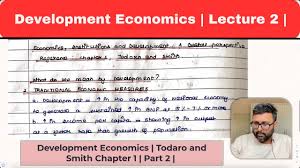 Development Economics | Lecture 2 |
Economics, Institutions and Development: A Global Perspective
Chapter 1, Todaro and Smith
What do we mean by Development?
TRADITIONAL ECONOMIC MEASURES
Development = in the capacity of national economy
to generate a
income per capita
growth rate than growth of population
Development Economics | Todaro and
Smith Chapter 1 | Part 2 |